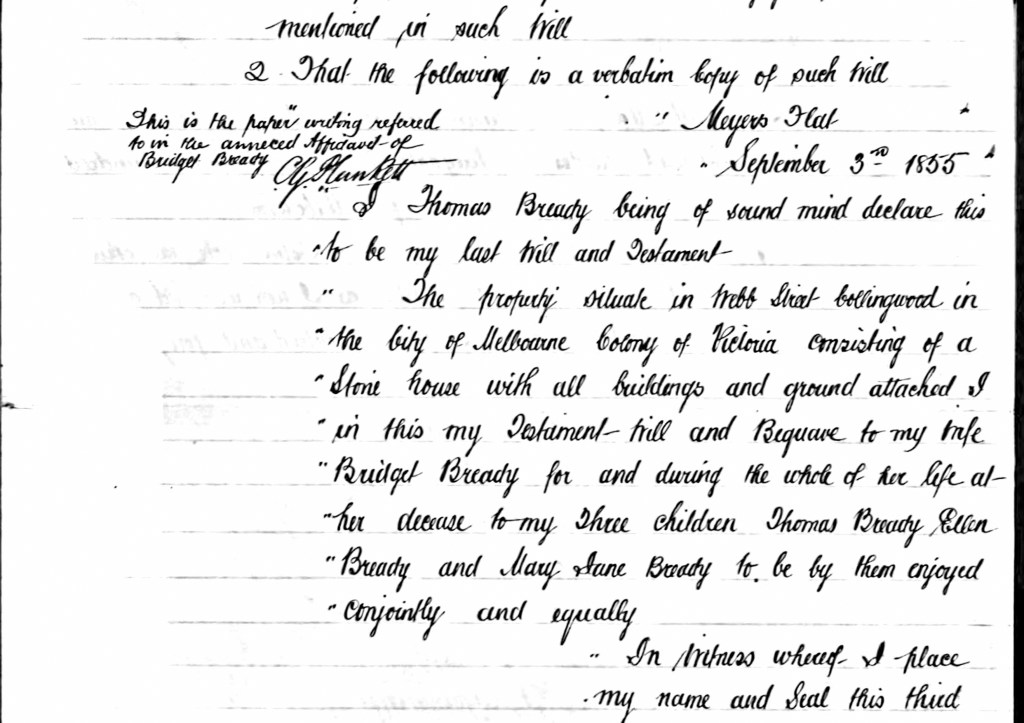 mentioned in such Will
2 That the following is a verbatim Copy of such Will
This is the paper writing refered
to in the annexed Affidavit of
Bridget Bready
" Meyers Flat "
" September 3rd 1855 "
" I Thomas Bready being of sound mind declare this
" to be my last Will and Testament
" The property situate in Webb Street Collingwood in
" the City of Melbourne Colony of Victoria consisting of a
" Stone house with all buildings and ground attached I
" in this my Testament Will and Bequave to my Wife
" Bridget Bready for and during the whole of her life at
" her decease to my Three children Thomas Bready Ellen
" Bready and Mary Jane Bready to be by them enjoyed
" Conjointly and equally
" In Witness whereof I place
" my name and Seal this third